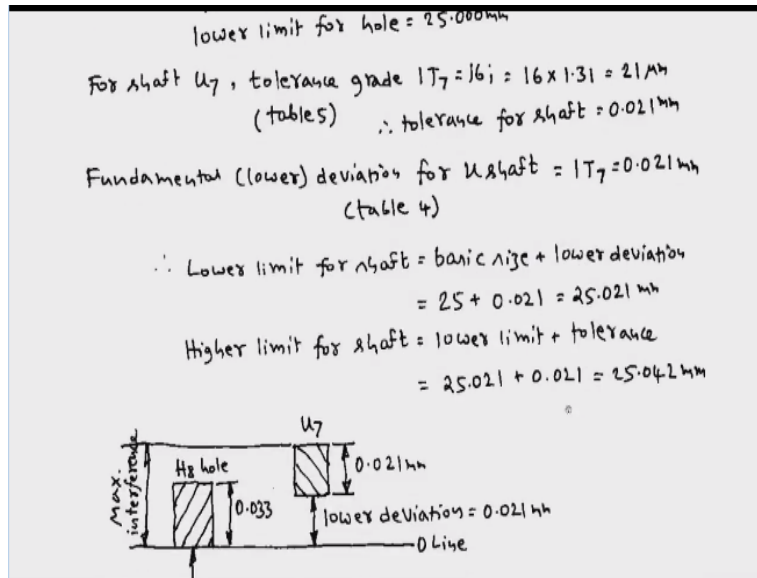 lower limit for hole = 25.000mm
For shaft U7, tolerance grade IT7 = 16i = 16 x 1.31 = 21 μm
(table 5) ∴ tolerance for shaft = 0.021 mm
Fundamental (lower) deviation for u shaft = IT7 = 0.021 mm
(table 4)
∴ Lower limit for shaft = basic size + lower deviation
= 25 + 0.021 = 25.021 mm
Higher limit for shaft = lower limit + tolerance
= 25.021 + 0.021 = 25.042 mm
U7
Max. interference
H8 hole
0.021mm
0.033
lower deviation = 0.021 mm
0 Line